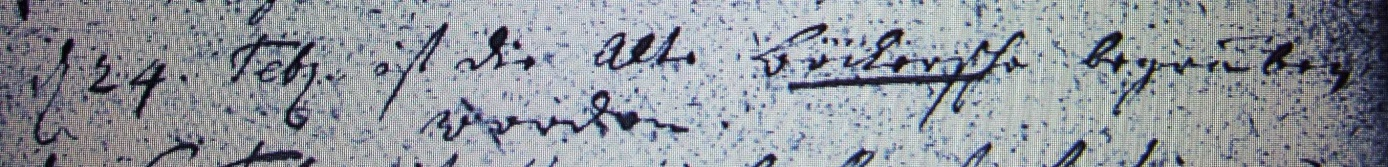 d 24. Febr. ist die alte Böckersche begraben
worden.